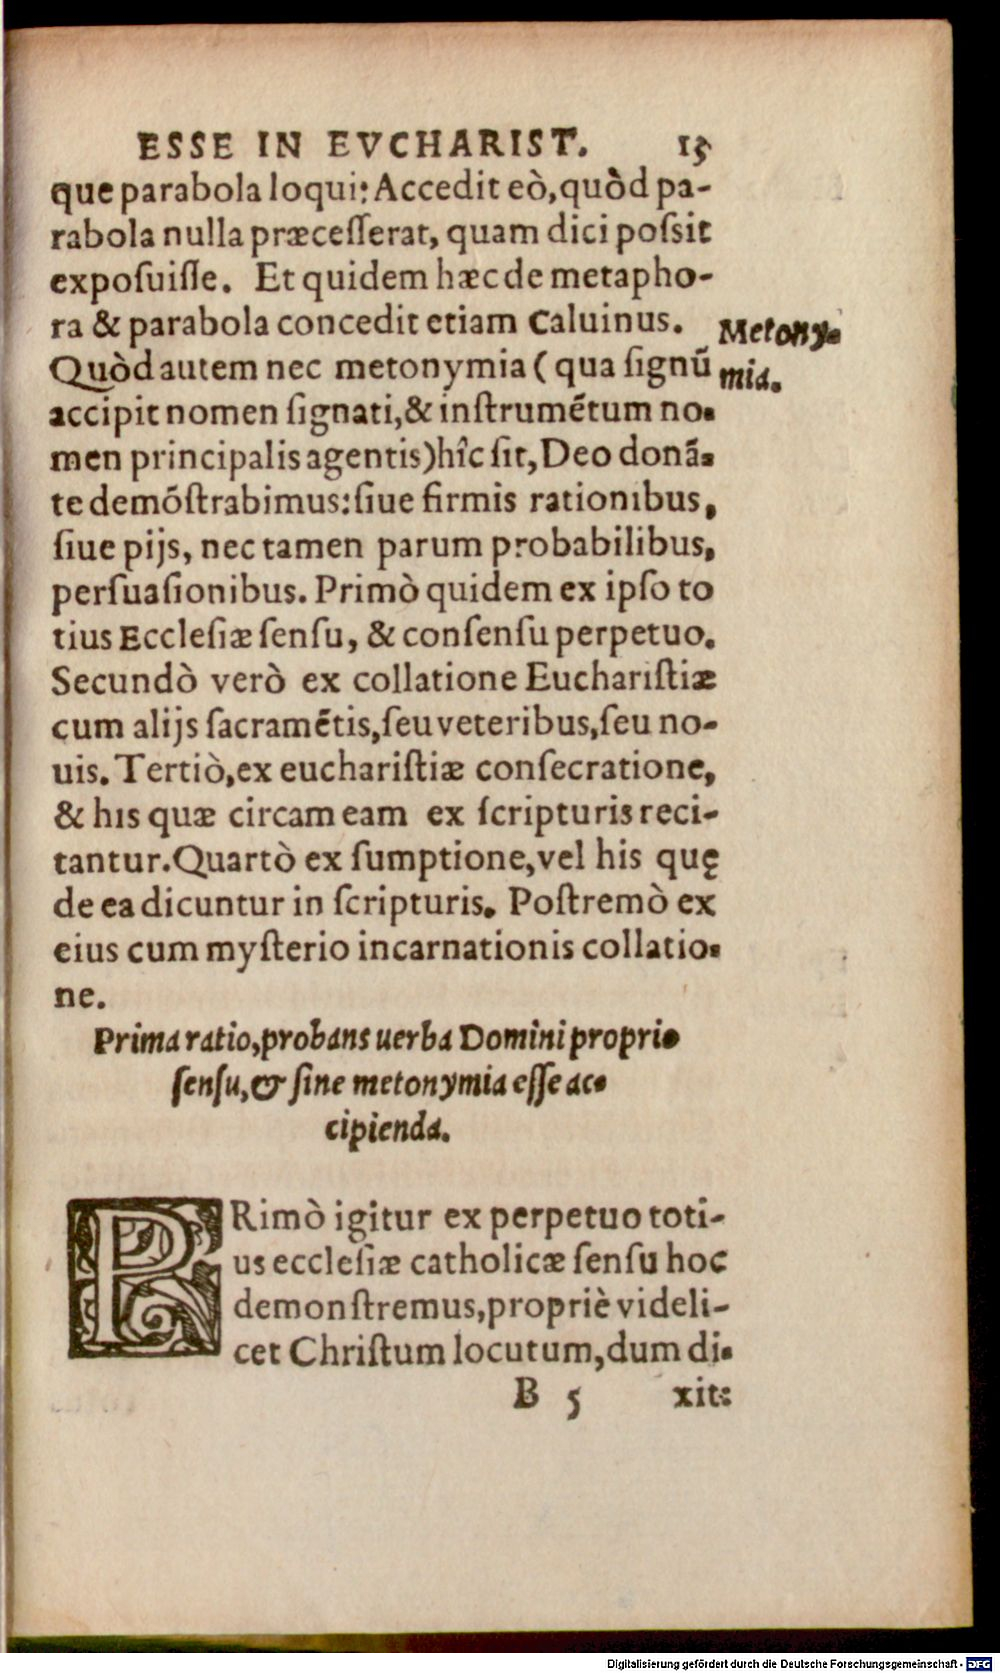 ESSE IN EVCHARIST. 15
que parabola loqui: Accedit eò, quòd pa-
rabola nulla præceſſerat, quam dici poſsit
expoſuiſſe. Et quidem hæc de metapho-
ra & parabola concedit etiam Caluinus.
Metony-
Quòd autem nec metonymia (qua ſignũ
mia.
accipit nomen ſignati, & inſtrumẽtum no-
men principalis agentis) hîc ſit, Deo donã-
te demõſtrabimus: ſiue firmis rationibus,
ſiue pijs, nec tamen parum probabilibus,
perſuaſionibus. Primò quidem ex ipſo to
tius Eccleſiæ ſenſu, & conſenſu perpetuo.
Secundò verò ex collatione Euchariſtiæ
cum alijs ſacramẽtis, ſeu veteribus, ſeu no-
uis. Tertiò, ex euchariſtiæ conſecratione,
& his quæ circam eam ex ſcripturis reci-
tantur. Quartò ex ſumptione, vel his quę
de ea dicuntur in ſcripturis. Poſtremò ex
eius cum myſterio incarnationis collatio-
ne.
Prima ratio, probans uerba Domini proprio
ſenſu, & ſine metonymia eſſe ac-
cipienda.
PRimò igitur ex perpetuo toti-
us eccleſiæ catholicæ ſenſu hoc
demonſtremus, propriè videli-
cet Chriſtum locutum, dum di-
B 5 xit:
Digitalisierung gefördert durch die Deutsche Forschungsgemeinschaft - DFG